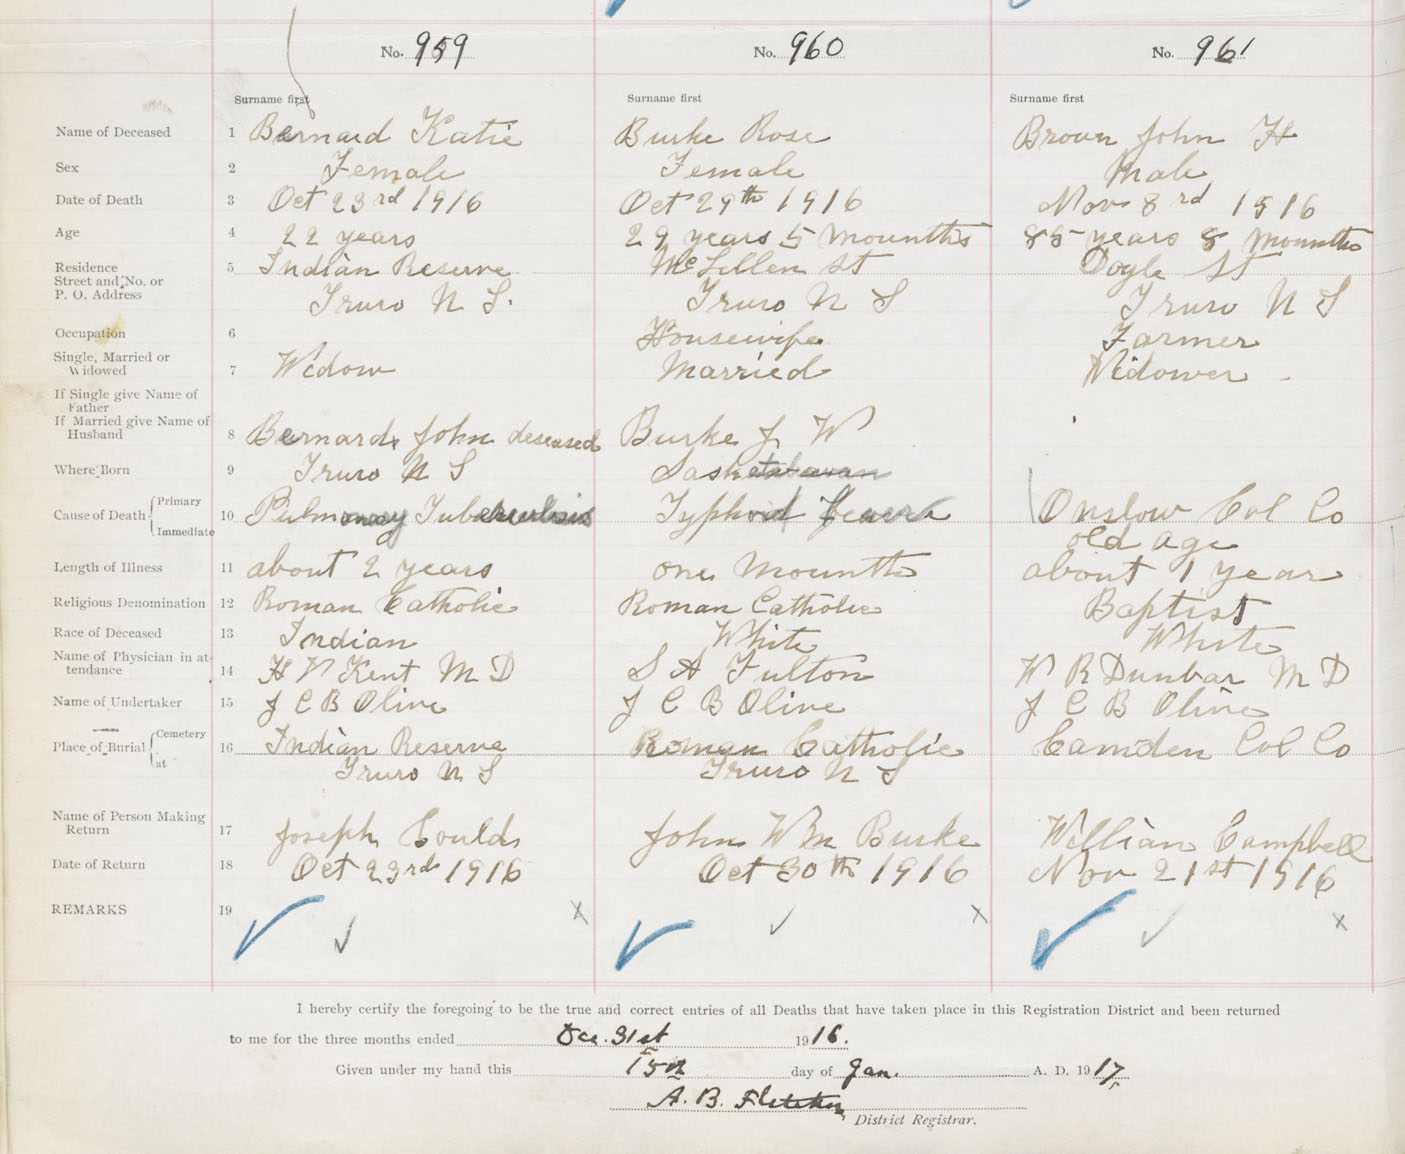 No. 959 No. 960 No. 961
Surname first Surname first Surname first
Name of Deceased 1 Bernard Katie Burke Rose Brown John H
Sex 2 Female Female Male
Date of Death 3 Oct 23rd 1916 Oct 29th 1916 Nov 8rd 1916
Age 4 22 years 29 years 5 mounths 85 years 8 mounths
Residence 5 Indian Reserve McLellen St Doyle St
Street and No. or
P. O. Address Truro N S. Truro N S Truro N S
Occupation 6 Housewife Farmer
Single, Married or
Widowed 7 Widow Married Widower
If Single give Name of
Father
If Married give Name of
Husband 8 Bernard John deseased Burke J W
Where Born 9 Truro N S Sasketchawan
Cause of Death Primary 10 Pulmonary Tuberculosis Typhoid Feaver Onslow Col Co
Immediate old age
Length of Illness 11 about 2 years one mounth about 1 year
Religious Denomination 12 Roman Catholic Roman Catholic Baptist
Race of Deceased 13 Indian White White
Name of Physician in at-
tendance 14 H V Kent M D S A Fulton W R Dunbar M D
Name of Undertaker 15 J C B Olive J C B Olive J C B Olive
Place of Burial Cemetery 16 Indian Reserve Roman Catholic Camden Col Co
at Truro N S Truro N S
Name of Person Making
Return 17 Joseph Goulds John Wm Burke William Campbell
Date of Return 18 Oct 23rd 1916 Oct 30th 1916 Nov 21st 1916
REMARKS 19
I hereby certify the foregoing to be the true and correct entries of all Deaths that have taken place in this Registration District and been returned
to me for the three months ended Dec. 31st 1916.
Given under my hand this 15th day of Jan. A. D. 1917
A. B. Fletcher
District Registrar.